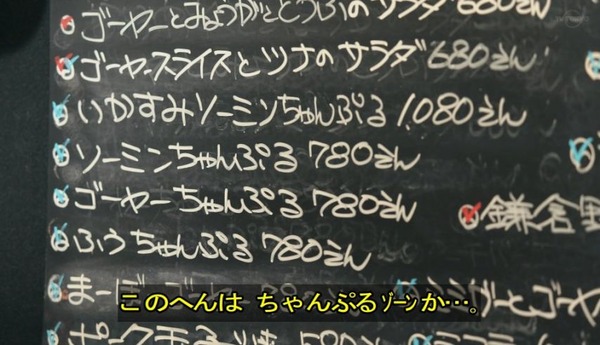 ゴーヤーとみょうがととうふのサラダ 680えん
ゴーヤースライスとツナのサラダ 680えん
いかすみソーミンちゃんぷる 1080えん
ソーミンちゃんぷる 780えん
ゴーヤーちゃんぷる 780えん
鎌倉野
ふぅちゃんぷる 780えん
まーぼ
このへんは ちゃんぷるゾーンか…。
ポーク玉子